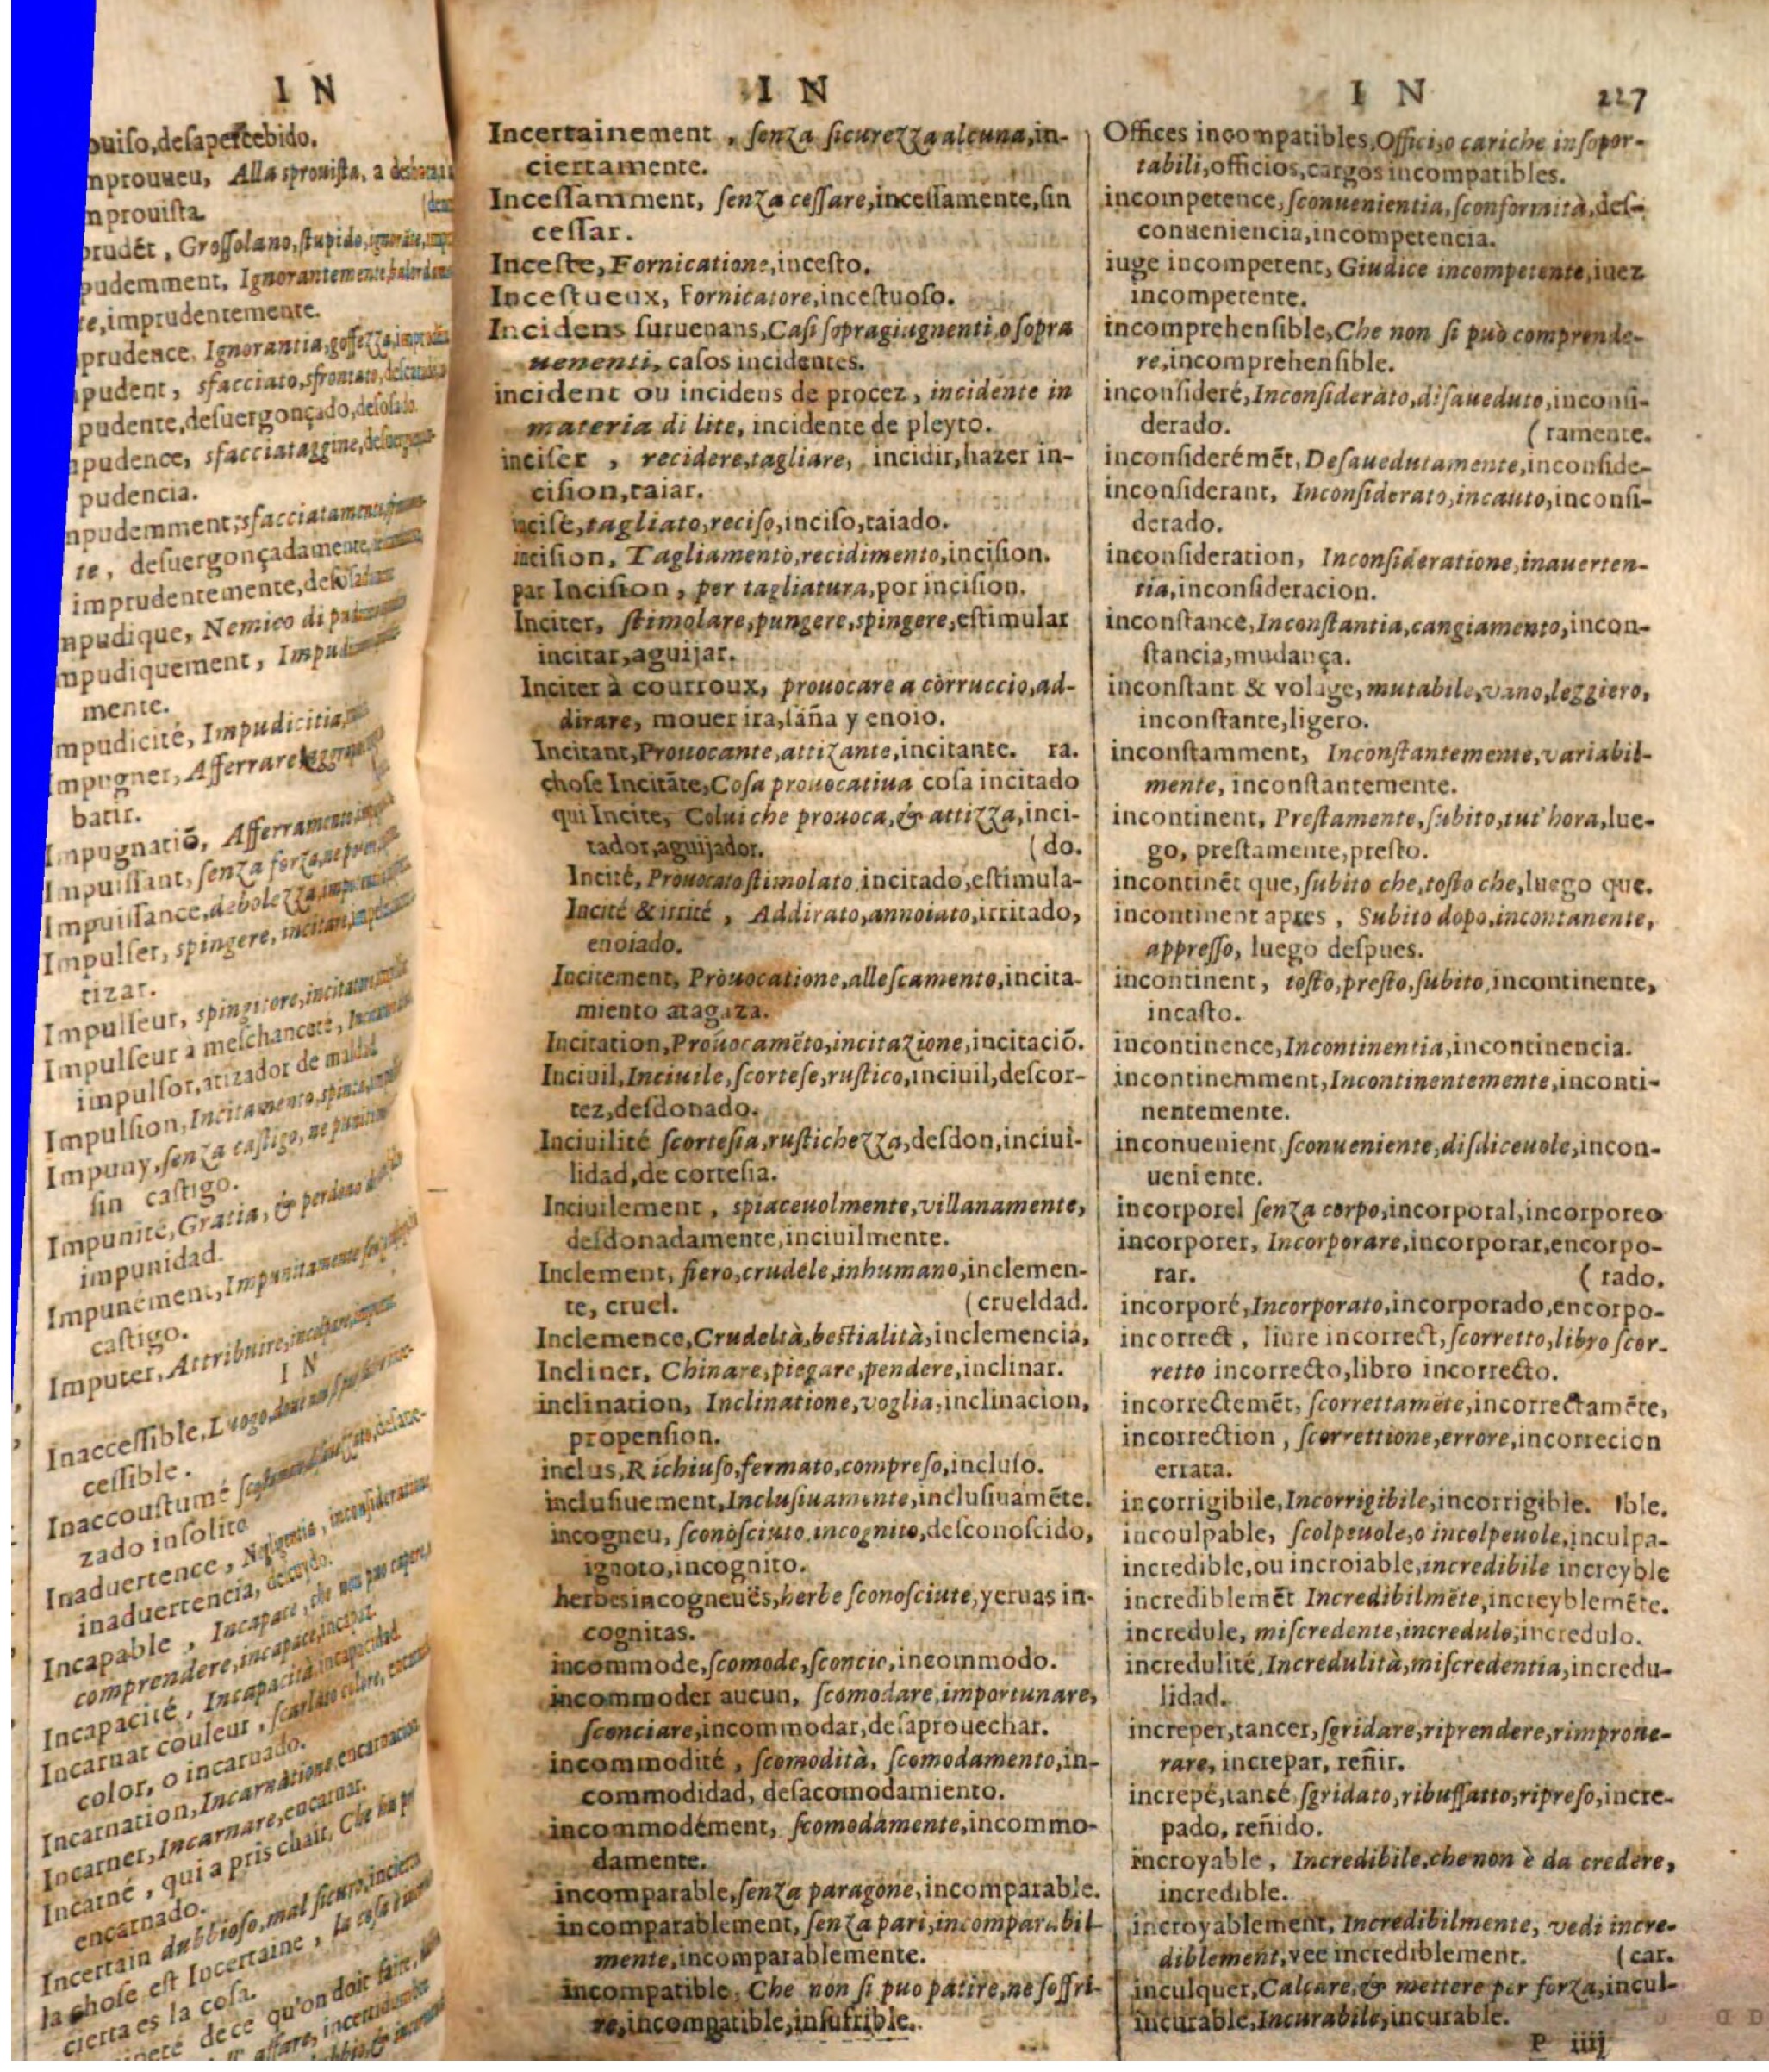 I N
ouiſo,deſapercebido.
nproueu, Alla sprouiſta, a
nprouiſta.
prudēt, Groſſolano,ſtupido,
pudemment, Ignorantemente,
te,imprudentemente.
prudence, Ignorantia,goffezza,
pudent, sfacciato,sfrontato,
pudente,deſuergonçado,deſoſado.
pudence, sfacciataggine,
pudencia.
npudemment,sfacciatamente,
te, deſuergonçadamente,
imprudentemente,
npudique, Nemico di
mpudiquement,
mente.
mpudicité, Impudicitia,
mpugner, Afferrare
batir.
Impugnatiō, Afferramento,
Impuiſſant, ſenza forza,
Impuiſſance,debolezza,
Impulſer, spingere, incitare,
tizar.
Impulſeur, spingitore,
Impulſeur à meſchanceté,
impulſor,atizador de maldad
Impulſion,Incitamento,spinta,
Impuny,ſenza caſtigo, ne
ſin caſtigo.
Impunité,Gratia, & perdono
impunidad.
Impunément,Impunitamente
caſtigo.
Imputer, Attribuire,
I N
Inacceſſible,Luogo,
ceſſible.
Inaccouſtumé
zado inſolito
Inaduertence, Negligentia, inconſideratione
inaduertencia, deſcuydo.
Incapable, Incapace, che non può capere,
comprendere,incapace,incapaz.
Incapacité, Incapacità,incapacidad.
Incarnat couleur, ſcarlato colore,
color, o incarnado.
Incarnation,Incarnatione,encarnacion
Incarner,Incarnare,encarnar.
Incarné, qui a pris chair, Che ha
encarnado.
Incertain dubbioſo,mal ſicuro,
la choſe eſt Incertaine, la coſa
cierta es la coſa.
dece qu'on doit faire,
affare,
I N
Incertainement, ſenza ſicurezza alcuna,in-
ciertamente.
Inceſſamment, ſenza ceſſare,inceſſamente,ſin
ceſſar.
Inceſte,Fornicatione,inceſto.
Inceſtueux, Fornicatore,inceſtuoſo.
Incidens ſuruenans,Caſi ſopragiugnenti,o ſopra
uenenti, caſos incidentes.
incident ou incidens de procez, incidente in
materia di lite, incidente de pleyto.
inciſer, recidere,tagliare, incidir,hazer in-
ciſion,taiar.
inciſe,tagliato,reciſo,inciſo,taiado.
inciſion, Tagliamento,recidimento,inciſion.
par Inciſion, per tagliatura,por inciſion.
Inciter, ſtimolare,pungere,spingere,eſtimular
incitar,aguijar.
Inciter à courroux, prouocare a corruccio,ad-
dirare, mouer ira,ſaña y enoio.
Incitant,Prouocante,attizante,incitante. ra.
choſe Incitāte,Coſa prouocatiua coſa incitado
qui Incite, Colui che prouoca,& attizza,inci-
tador,aguijador. (do.
Incité, Prouocato ſtimolato incitado,eſtimula-
Incité & irrité, Addirato,annoiato,irritado,
enoiado.
Incitement, Prouocatione,alleſcamento,incita-
miento atagiza.
Incitation,Prouocamēto,incitazione,incitaciō.
Inciuil,Inciuile,ſcorteſe,ruſtico,inciuil,deſcor-
tez,deſdonado.
Inciuilité ſcorteſia,ruſtichezza,deſdon,inciui-
lidad,de corteſia.
Inciuilement, spiaceuolmente,villanamente,
deſdonadamente,inciuilmente.
Inclement, fiero,crudele,inhumano,inclemen-
te, cruel. (crueldad.
Inclemence,Crudeltà,beſtialità,inclemencia,
Incliner, Chinare,piegare,pendere,inclinar.
inclination, Inclinatione,voglia,inclinacion,
propenſion.
inclus,Richiuſo,fermato,compreſo,incluſo.
incluſiuement,Incluſiuamente,incluſiuamēte.
incogneu, ſconoſciuto,incognito,deſconoſcido,
ignoto,incognito.
herbes incogneuës,herbe ſconoſciute,yeruas in-
cognitas.
incommode,ſcomode,ſconcio,incommodo.
incommoder aucun, ſcomodare,importunare,
ſconciare,incommodar,deſaprouechar.
incommodité, ſcomodità, ſcomodamento,in-
commodidad, deſacomodamiento.
incommodément, ſcomodamente,incommo-
damente.
incomparable,ſenza paragone,incomparable.
incomparablement, ſenza pari,incomparabil-
mente,incomparablemente.
incompatible, Che non ſi puo patire,ne ſoffri-
re,incompatible,inſufrible.
I N 227
Offices incompatibles,Offici,o cariche inſopor-
tabili,officios,cargos incompatibles.
incompetence,ſconuenientia,ſconformità,deſ-
conueniencia,incompetencia.
iuge incompetent, Giudice incompetente,iuez
incompetente.
incomprehenſible,Che non ſi può comprende-
re,incomprehenſible.
inconſideré,Inconſiderato,diſaueduto,inconſi-
derado. (ramente.
inconſiderémēt,Deſauedutamente,inconſide-
inconſiderant, Inconſiderato,incauto,inconſi-
derado.
inconſideration, Inconſideratione,inauerten-
tia,inconſideracion.
inconſtance,Inconſtantia,cangiamento,incon-
ſtancia,mudança.
inconſtant & volage,mutabile,vano,leggiero,
inconſtante,ligero.
inconſtamment, Inconſtantemente,variabil-
mente, inconſtantemente.
incontinent, Preſtamente,ſubito,tut'hora,lue-
go, preſtamente,preſto.
incontinēt que,ſubito che,toſto che,luego que.
incontinent apres, Subito dopo,incontanente,
appreſſo, luego deſpues.
incontinent, toſto,preſto,ſubito,incontinente,
incaſto.
incontinence,Incontinentia,incontinencia.
incontinemment,Incontinentemente,inconti-
nentemente.
inconuenient,ſconueniente,diſdiceuole,incon-
ueniente.
incorporel ſenza corpo,incorporal,incorporeo
incorporer, Incorporare,incorporar,encorpo-
rar. (rado.
incorporé,Incorporato,incorporado,encorpo-
incorrect, liure incorrect,ſcorretto,libro ſcor-
retto incorrecto,libro incorrecto.
incorrectemēt, ſcorrettamēte,incorrectamēte,
incorrection, ſcorrettione,errore,incorrecion
errata.
incorrigibile,Incorrigibile,incorrigible. ible.
incoulpable, ſcolpeuole,o incolpeuole,inculpa-
incredible,ou incroiable,incredibile increyble
incrediblemēt Incredibilmēte,increyblemēte.
incredule, miſcredente,incredulo,incredulo.
incredulité,Incredulità,miſcredentia,incredu-
lidad.
increper,tancer,ſgridare,riprendere,rimproue-
rare, increpar, reñir.
increpé,tancé,ſgridato,ribuffatto,ripreſo,incre-
pado, reñido.
incroyable, Incredibile,che non è da credere,
incredible.
incroyablement, Incredibilmente, vedi incre-
diblement,vee incrediblement. (car.
inculquer,Calcare,& mettere per forza,incul-
incurable,Incurabile,incurable.
P iiij